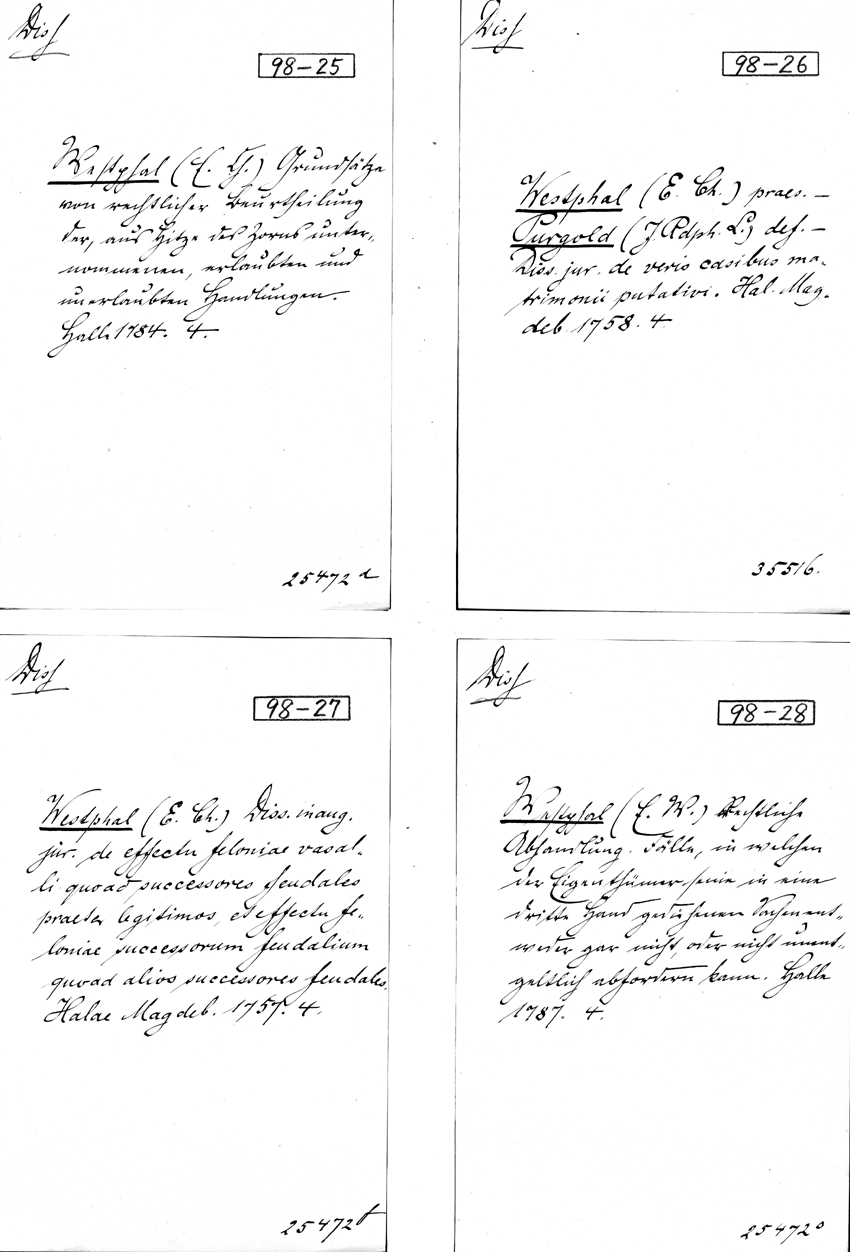 Diss
98-25
Westphal (E. Ch.) Grundsätze
von rechtlicher Beurtheilung
der, aus Hitze des Zorns unter-
nommenen, erlaubten und
unerlaubten Handlungen.
Halle 1784. 4.
25472 d
Diss
98-26
Westphal (E. Ch.) praes. —
Purgold (J. Rdph. L.) def. —
Diss. jur. de veris casibus ma-
trimonii putativi. Hal. Mag-
deb. 1758. 4
35516.
Diss
98-27
Westphal (E. Ch.) Diss. inaug.
jur. de effectu feloniae vasal-
li quoad successores feudales
praeter legitimos, et effectu fe-
loniae successorum feudalium
quoad alios successores feudales.
Halae Magdeb. 1757. 4.
25472 f
Diss
98-28
Westphal (E. W.) Rechtliche
Abhandlung. Fälle, in welchen
der Eigenthümer seine in eine
dritte Hand gediehenen Sachen ent-
weder gar nicht, oder nicht unent-
geltlich abfordern kann. Halle
1787. 4.
25472 o